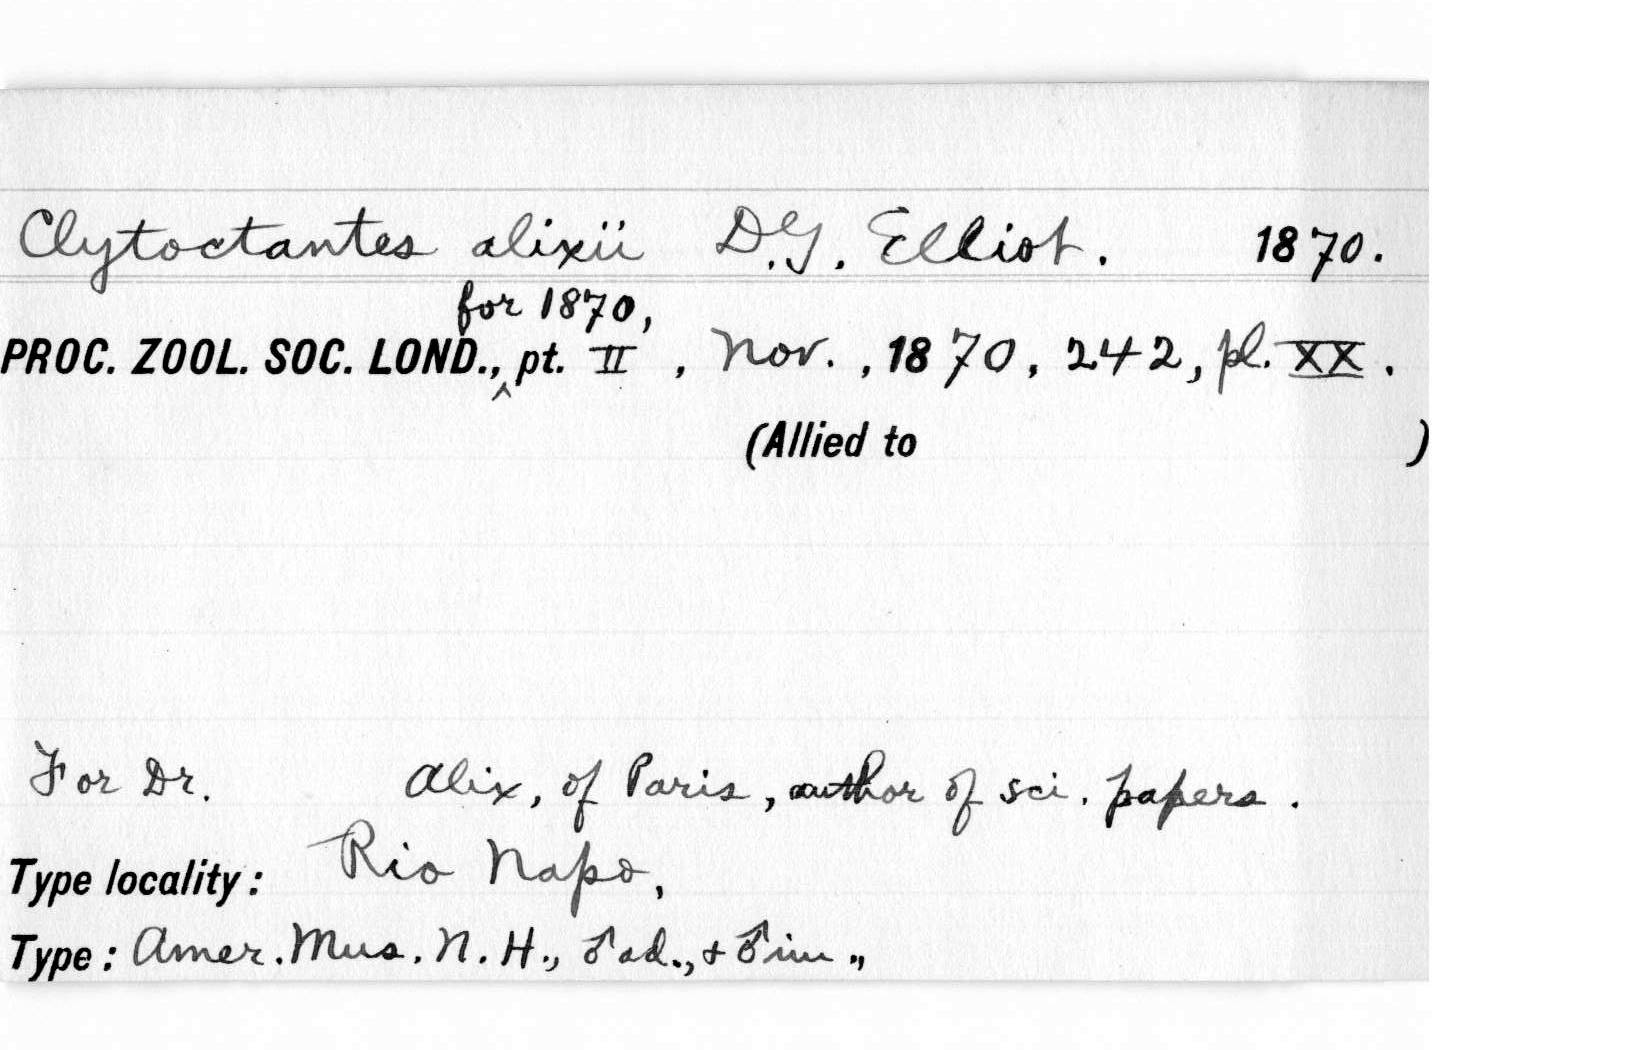 Clytoctantes alixii D.G. Elliot. 1870.
for 1870,
PROC. ZOOL. SOC. LOND.,‸ pt. II , Nov. , 1870, 242, pl. XX .
(Allied to )
For Dr. Alix, of Paris, author of sci. papers .
Type locality : Rio Napo,
Type : Amer. Mus. N. H., ♂ ad., + ♂ im .,